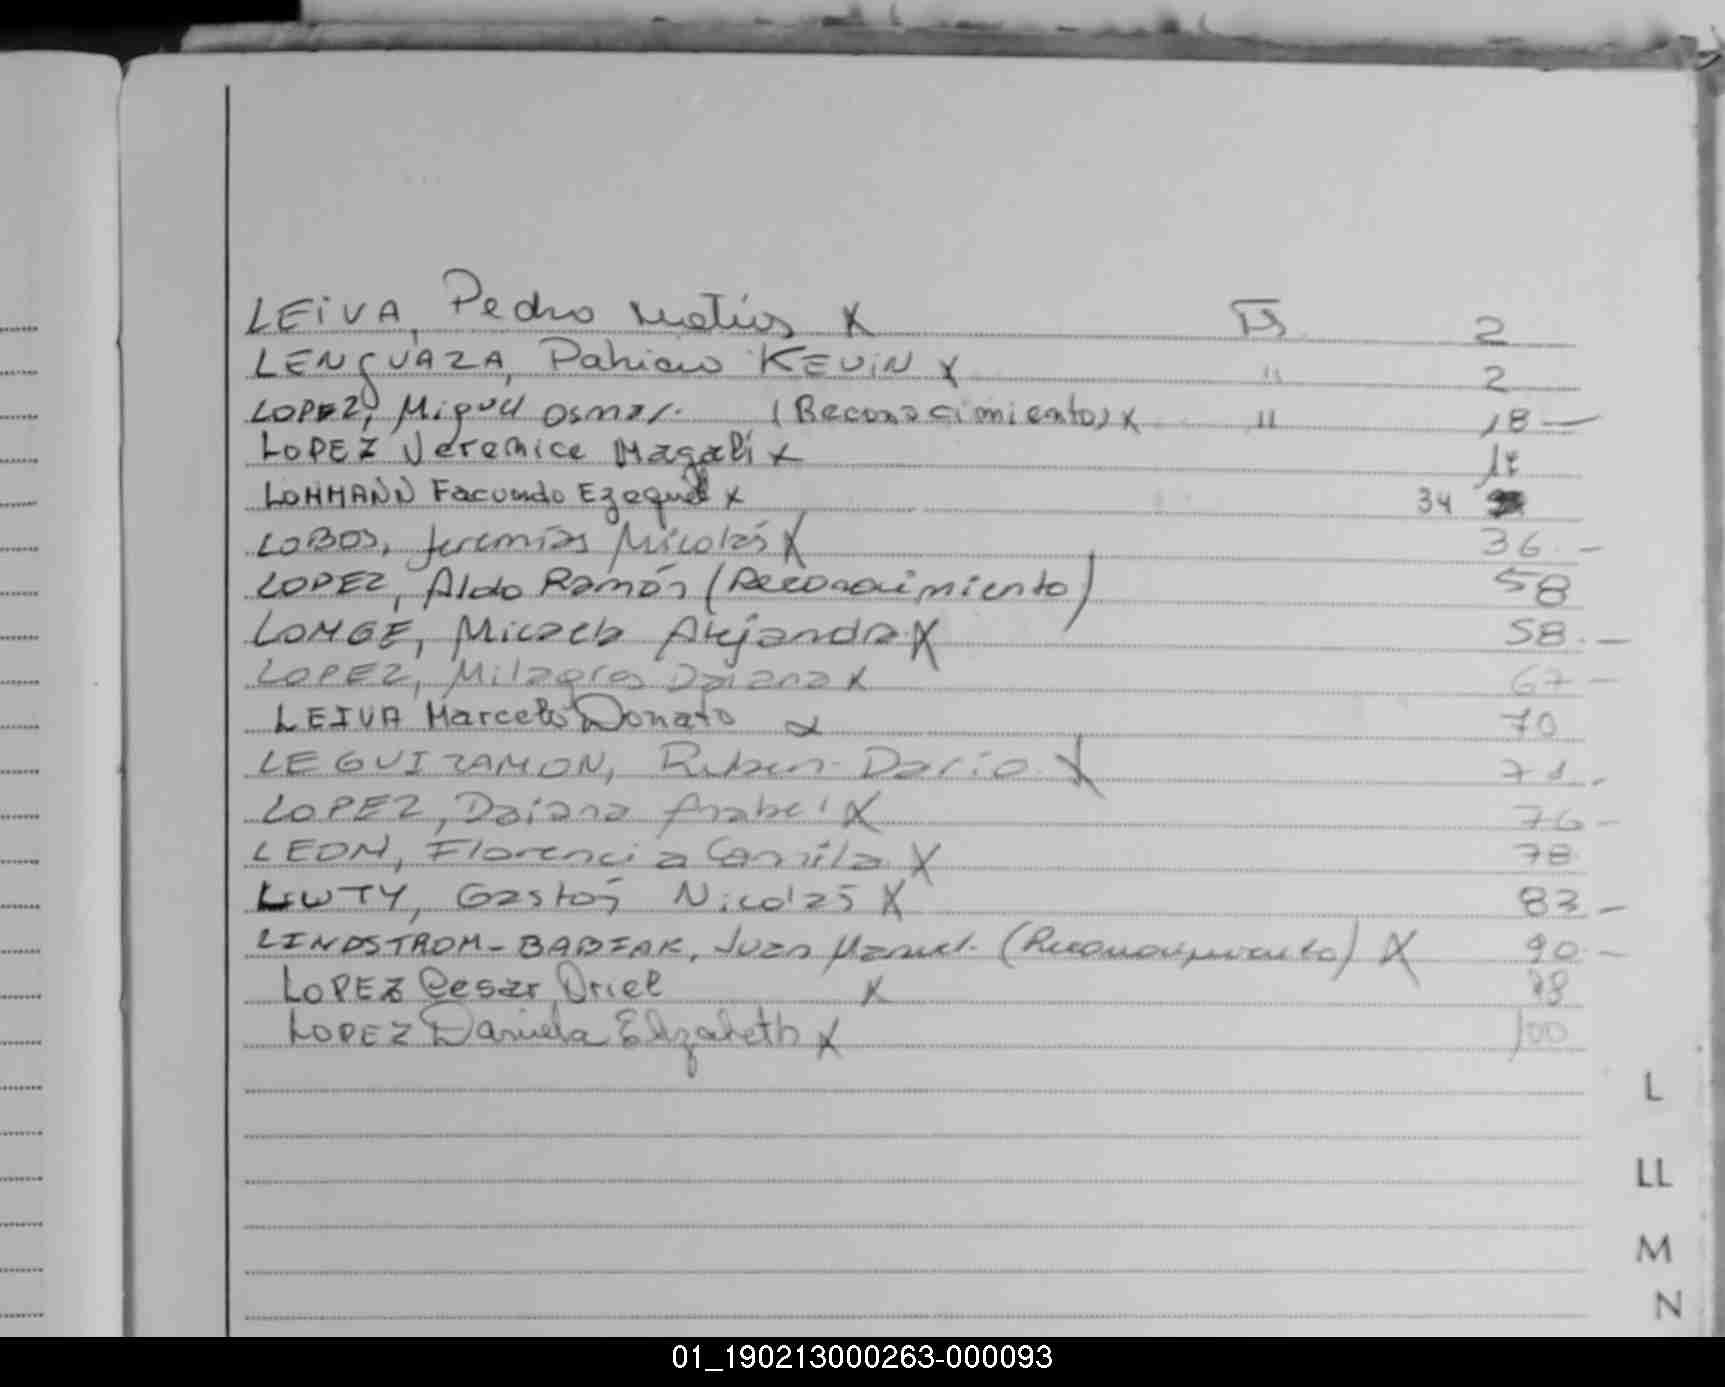 LEIVA, Pedro Matías X IS 2
LENGUAZA, Damian KEVIN X " 2
LOPEZ, Miguel Osmar. (Reconocimiento) X " 18 —
LOPEZ Jeremice Magali X 17
LOHMANN Facundo Ezequiel X 34
LOBOS, Jeremías Nicolás X 36. —
LOPEZ, Aldo Ramón (Reconocimiento) 58
LONGE, Micaela Alejandra X 58. —
LOPEZ, Milagros Daiana X 67 —
LEIVA Marcelo Donato X 70
LEGUIZAMON, Ruben Dario. X 71.
LOPEZ, Daiana Anabel X 76 —
LEON, Florencia Camila X 78
LEWTY, Gastón Nicolás X 83 —
LINDSTROM-BABIAK, Juan Manuel. (Reconocimiento) X 90. —
LOPEZ Cesar Oriel X 98
LOPEZ Daniela Elizabeth X 100
L
LL
M
N
01_190213000263-000093